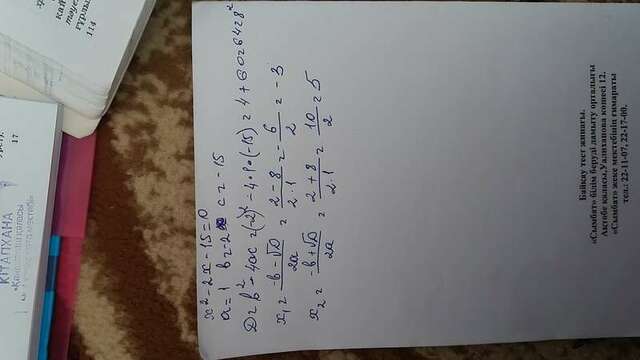 КІТАПХАНА
17
114
x² - 2x - 15 = 0
a = 1 b = -2 c = -15
D = b² - 4ac = (-2)² - 4·1·(-15) = 4 + 60 = 64 = 8²
x₁ = (-b - √D)/2a = (2 - 8)/(2·1) = -6/2 = -3
x₂ = (-b + √D)/2a = (2 + 8)/(2·1) = 10/2 = 5
Байқау тест жинағы.
«Сымбат» білім беруді дамыту орталығы
Ақтөбе қаласы,Уалиханова көшесі 12.
«Сымбат» жеке мектебінің ғимараты
тел.: 22-11-07, 22-17-00.